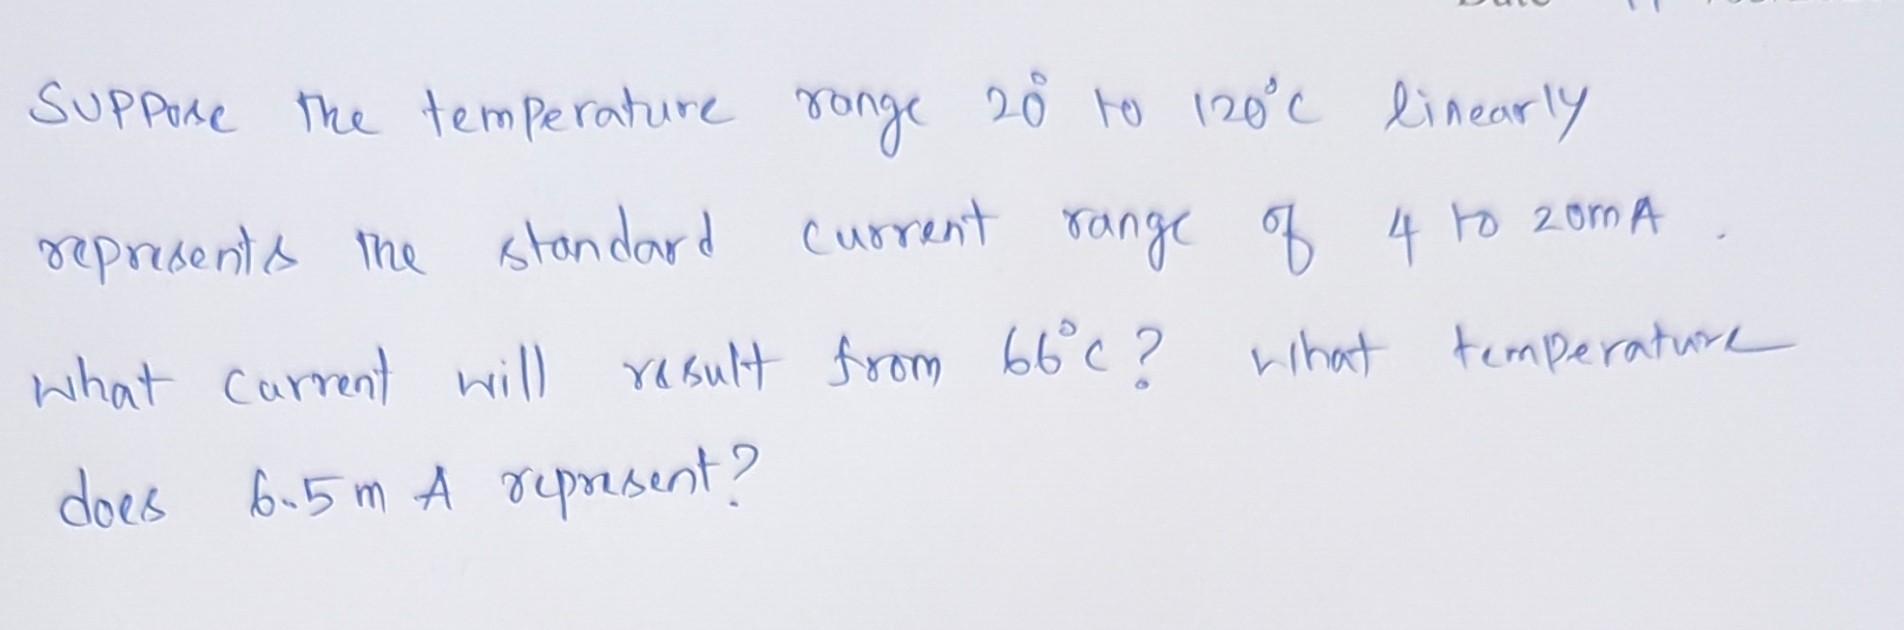 Suppose the temperature range 20° to 120°c linearly
represents the standard current range of 4 to 20mA.
What current will result from 66°c? What temperature
does 6.5 mA represent?